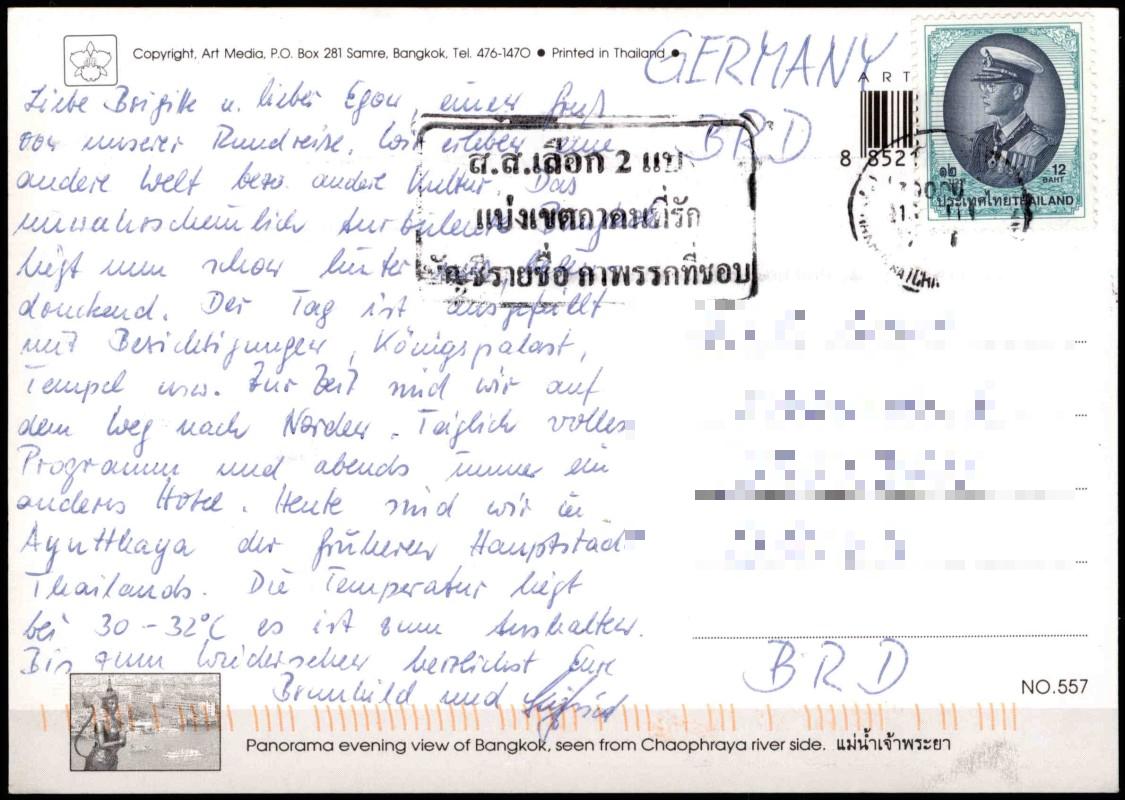 Copyright, Art Media, P.O. Box 281 Samre, Bangkok, Tel. 476-1470 ● Printed in Thailand ●
GERMANY
BRD
ART
8 8521
๑๒ 12
BAHT
ประเทศไทย THAILAND
ส.ส.เลือก 2 แบบ
แบ่งเขตถาคนที่รัก
บัญชีรายชื่อ กาพรรคที่ชอบ
Liebe Brigitte u. lieber Egon, einen Gruß
von unserer Rundreise. Wir erleben eine
andere Welt bezw. andere Kultur. Das
unwahrscheinlich turbulente Bangkok
liegt nun schon hinter
Der Tag ist ausgefüllt
mit Besichtigungen, Königspalast,
Tempel usw. Zur Zeit sind wir auf
dem Weg nach Norden. Täglich volles
Programm und abends immer ein
anderes Hotel. Heute sind wir in
Ayutthaya der früheren Hauptstadt
Thailands. Die Temperatur liegt
bei 30-32°C es ist zum Aushalten.
Bis zum Wiedersehen herzlichst Eure
Brunhild und Siegfried
BRD
NO.557
Panorama evening view of Bangkok, seen from Chaophraya river side. แม่น้ำเจ้าพระยา